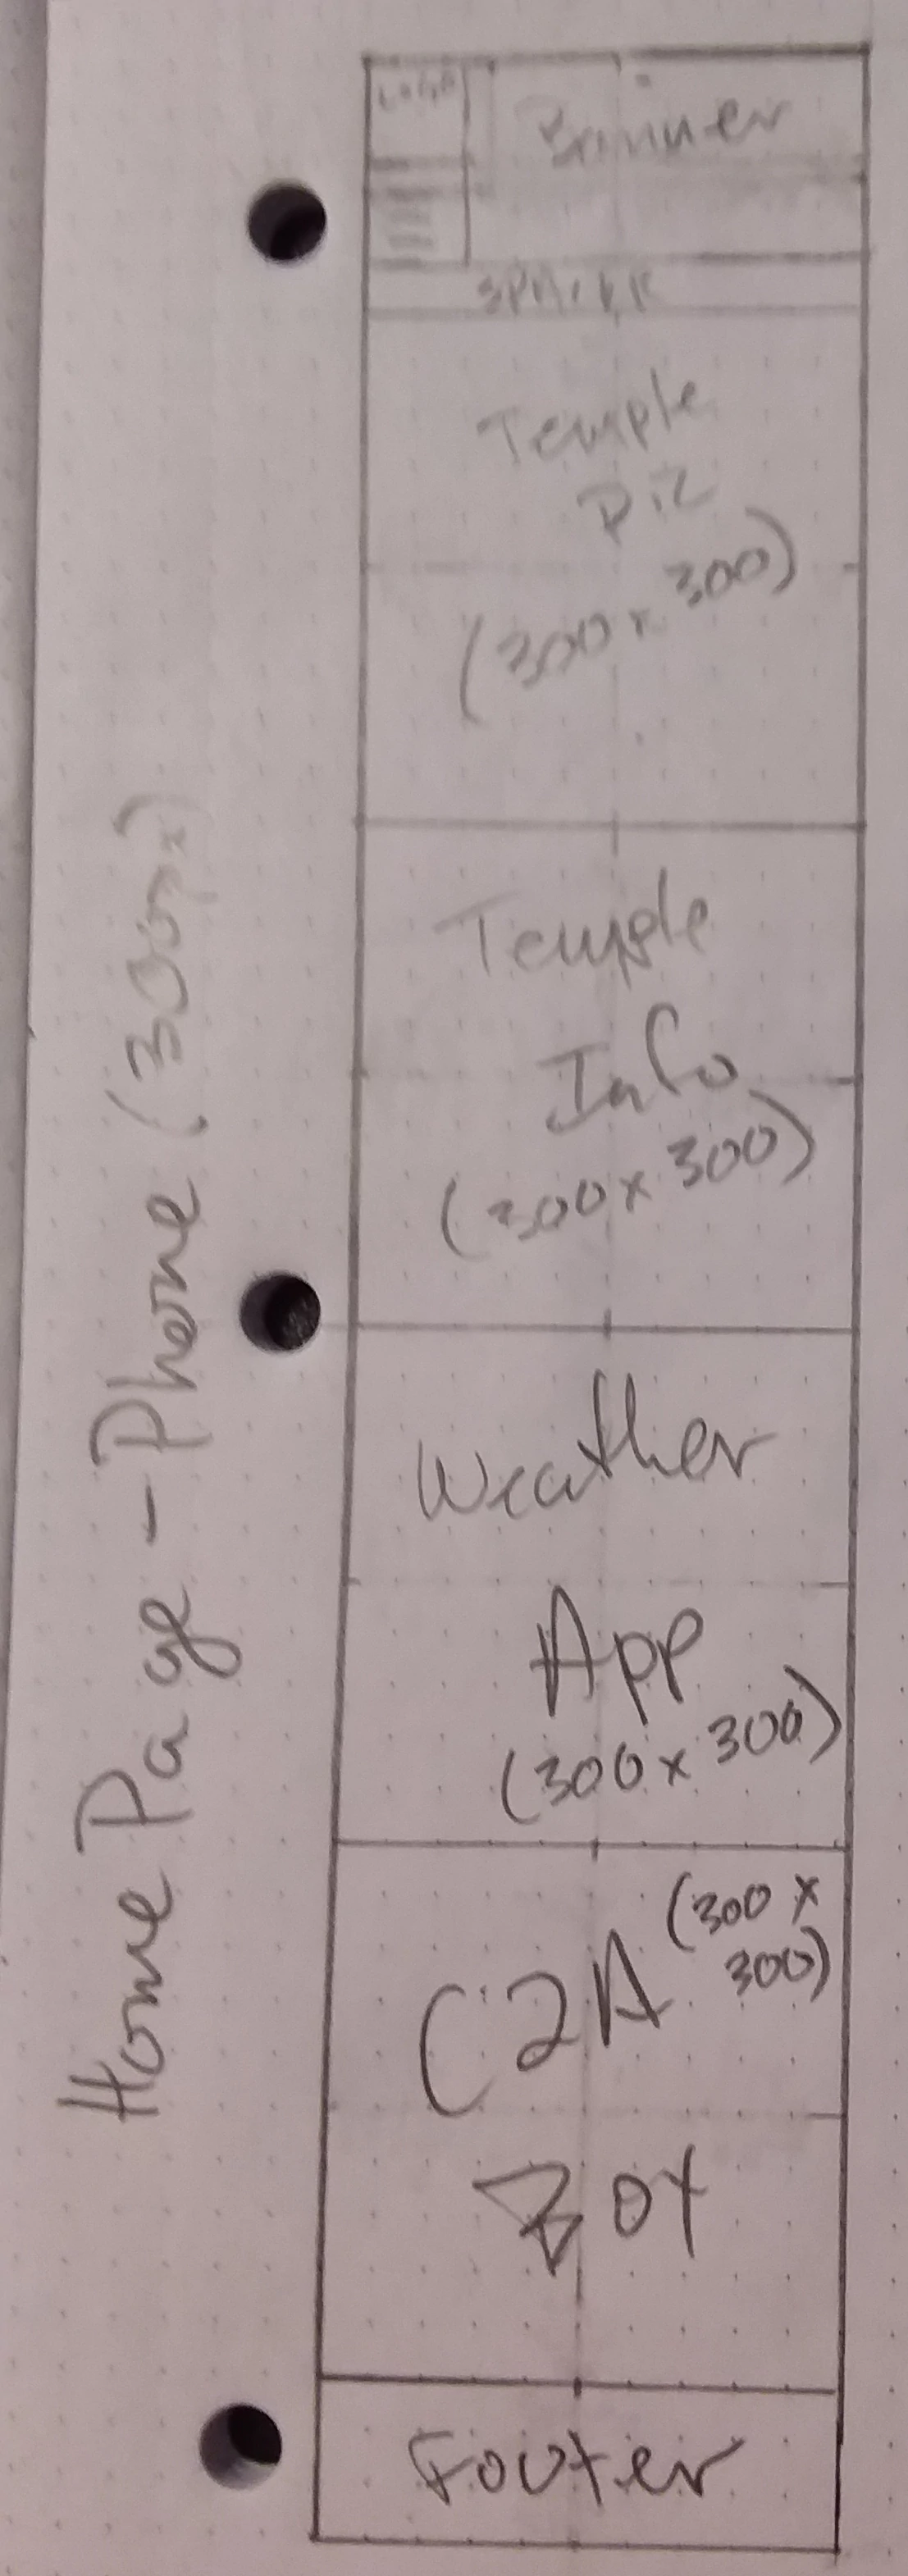 Home Page - Phone (300px)
LOGO
Banner
SPACER
Temple
Pic
(300 x 300)
Temple
Info
(300 x 300)
Weather
App
(300 x 300)
C2A (300 x
300)
Box
Footer